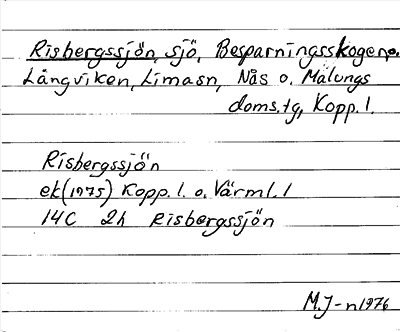 Risbergssjön, sjö, Besparningsskogen o.
Långviken, Limasn, Nås o. Malungs
doms.tg, Kopp. l.
Risbergssjön
ek (1975) Kopp. l. o. Värml. l
14C 2h Risbergssjön
M.J-n 1976